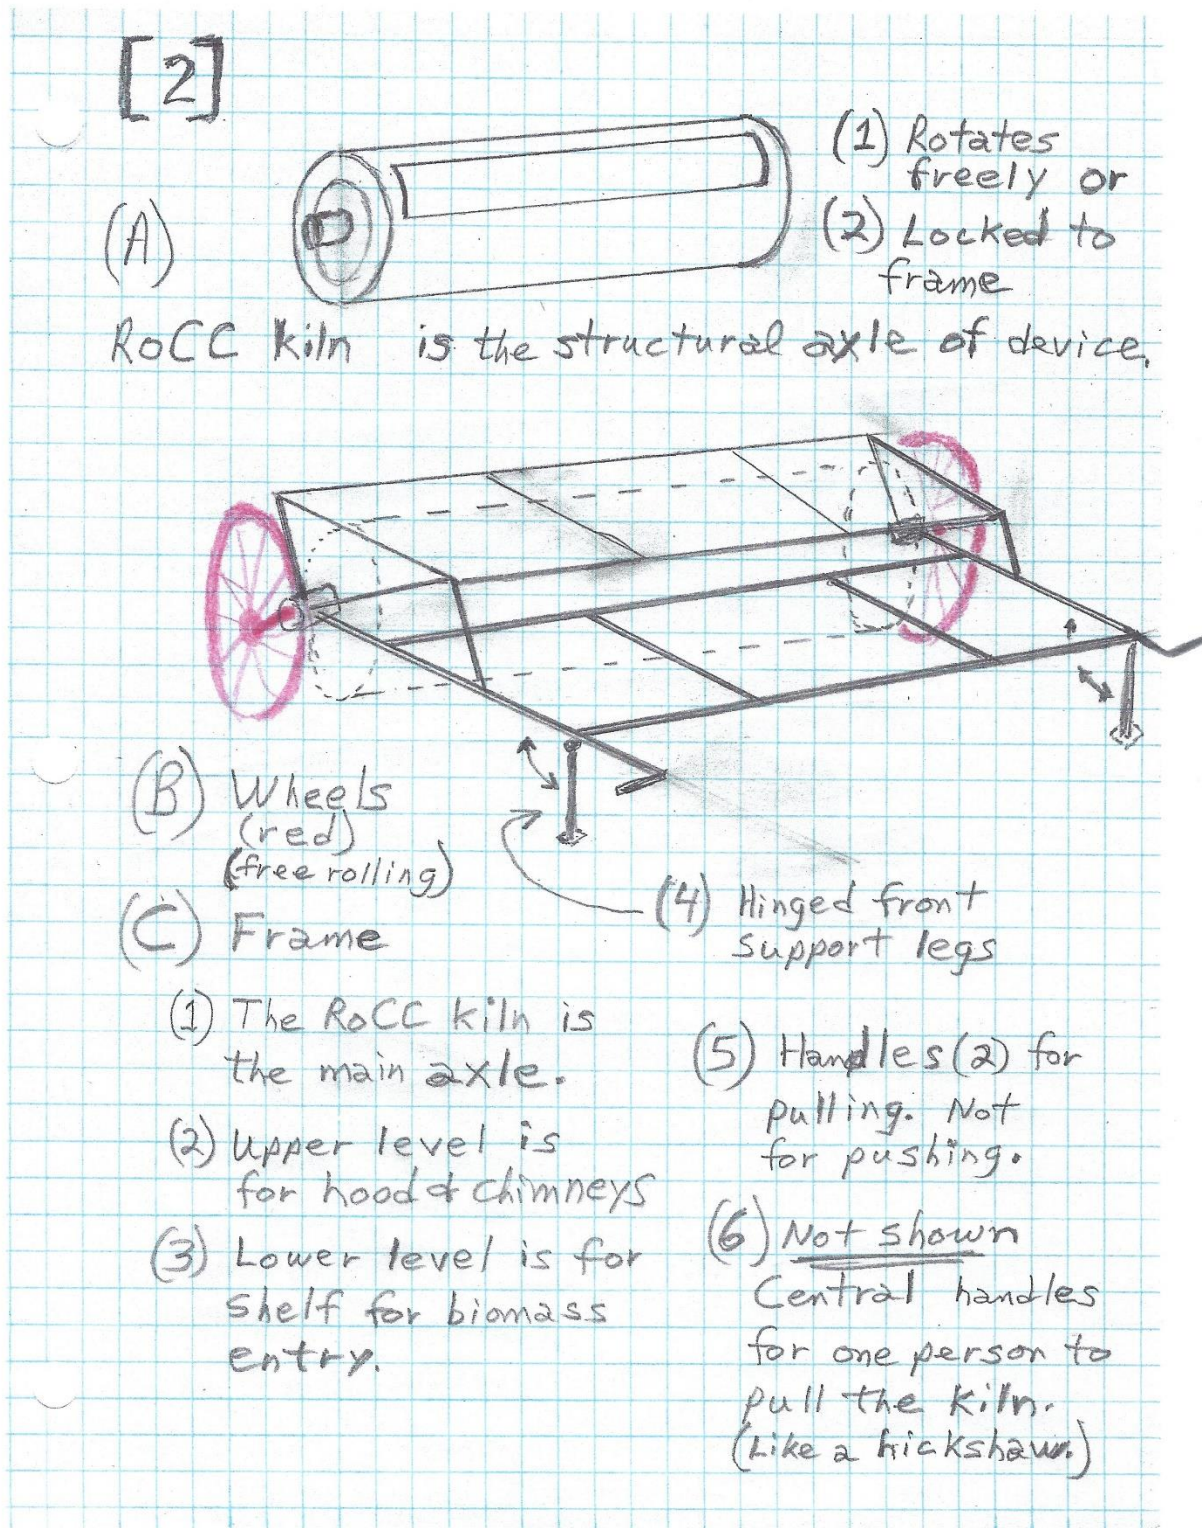 [2]
(A)
(1) Rotates
freely or
(2) Locked to
frame
RoCC kiln is the structural axle of device.
(B) Wheels
(red)
(free rolling)
(C) Frame
(1) The RoCC kiln is
the main axle.
(2) Upper level is
for hood & chimneys
(3) Lower level is for
shelf for biomass
entry.
(4) Hinged front
support legs
(5) Handles (2) for
pulling. Not
for pushing.
(6) Not shown
Central handles
for one person to
pull the kiln.
(Like a rickshaw.)